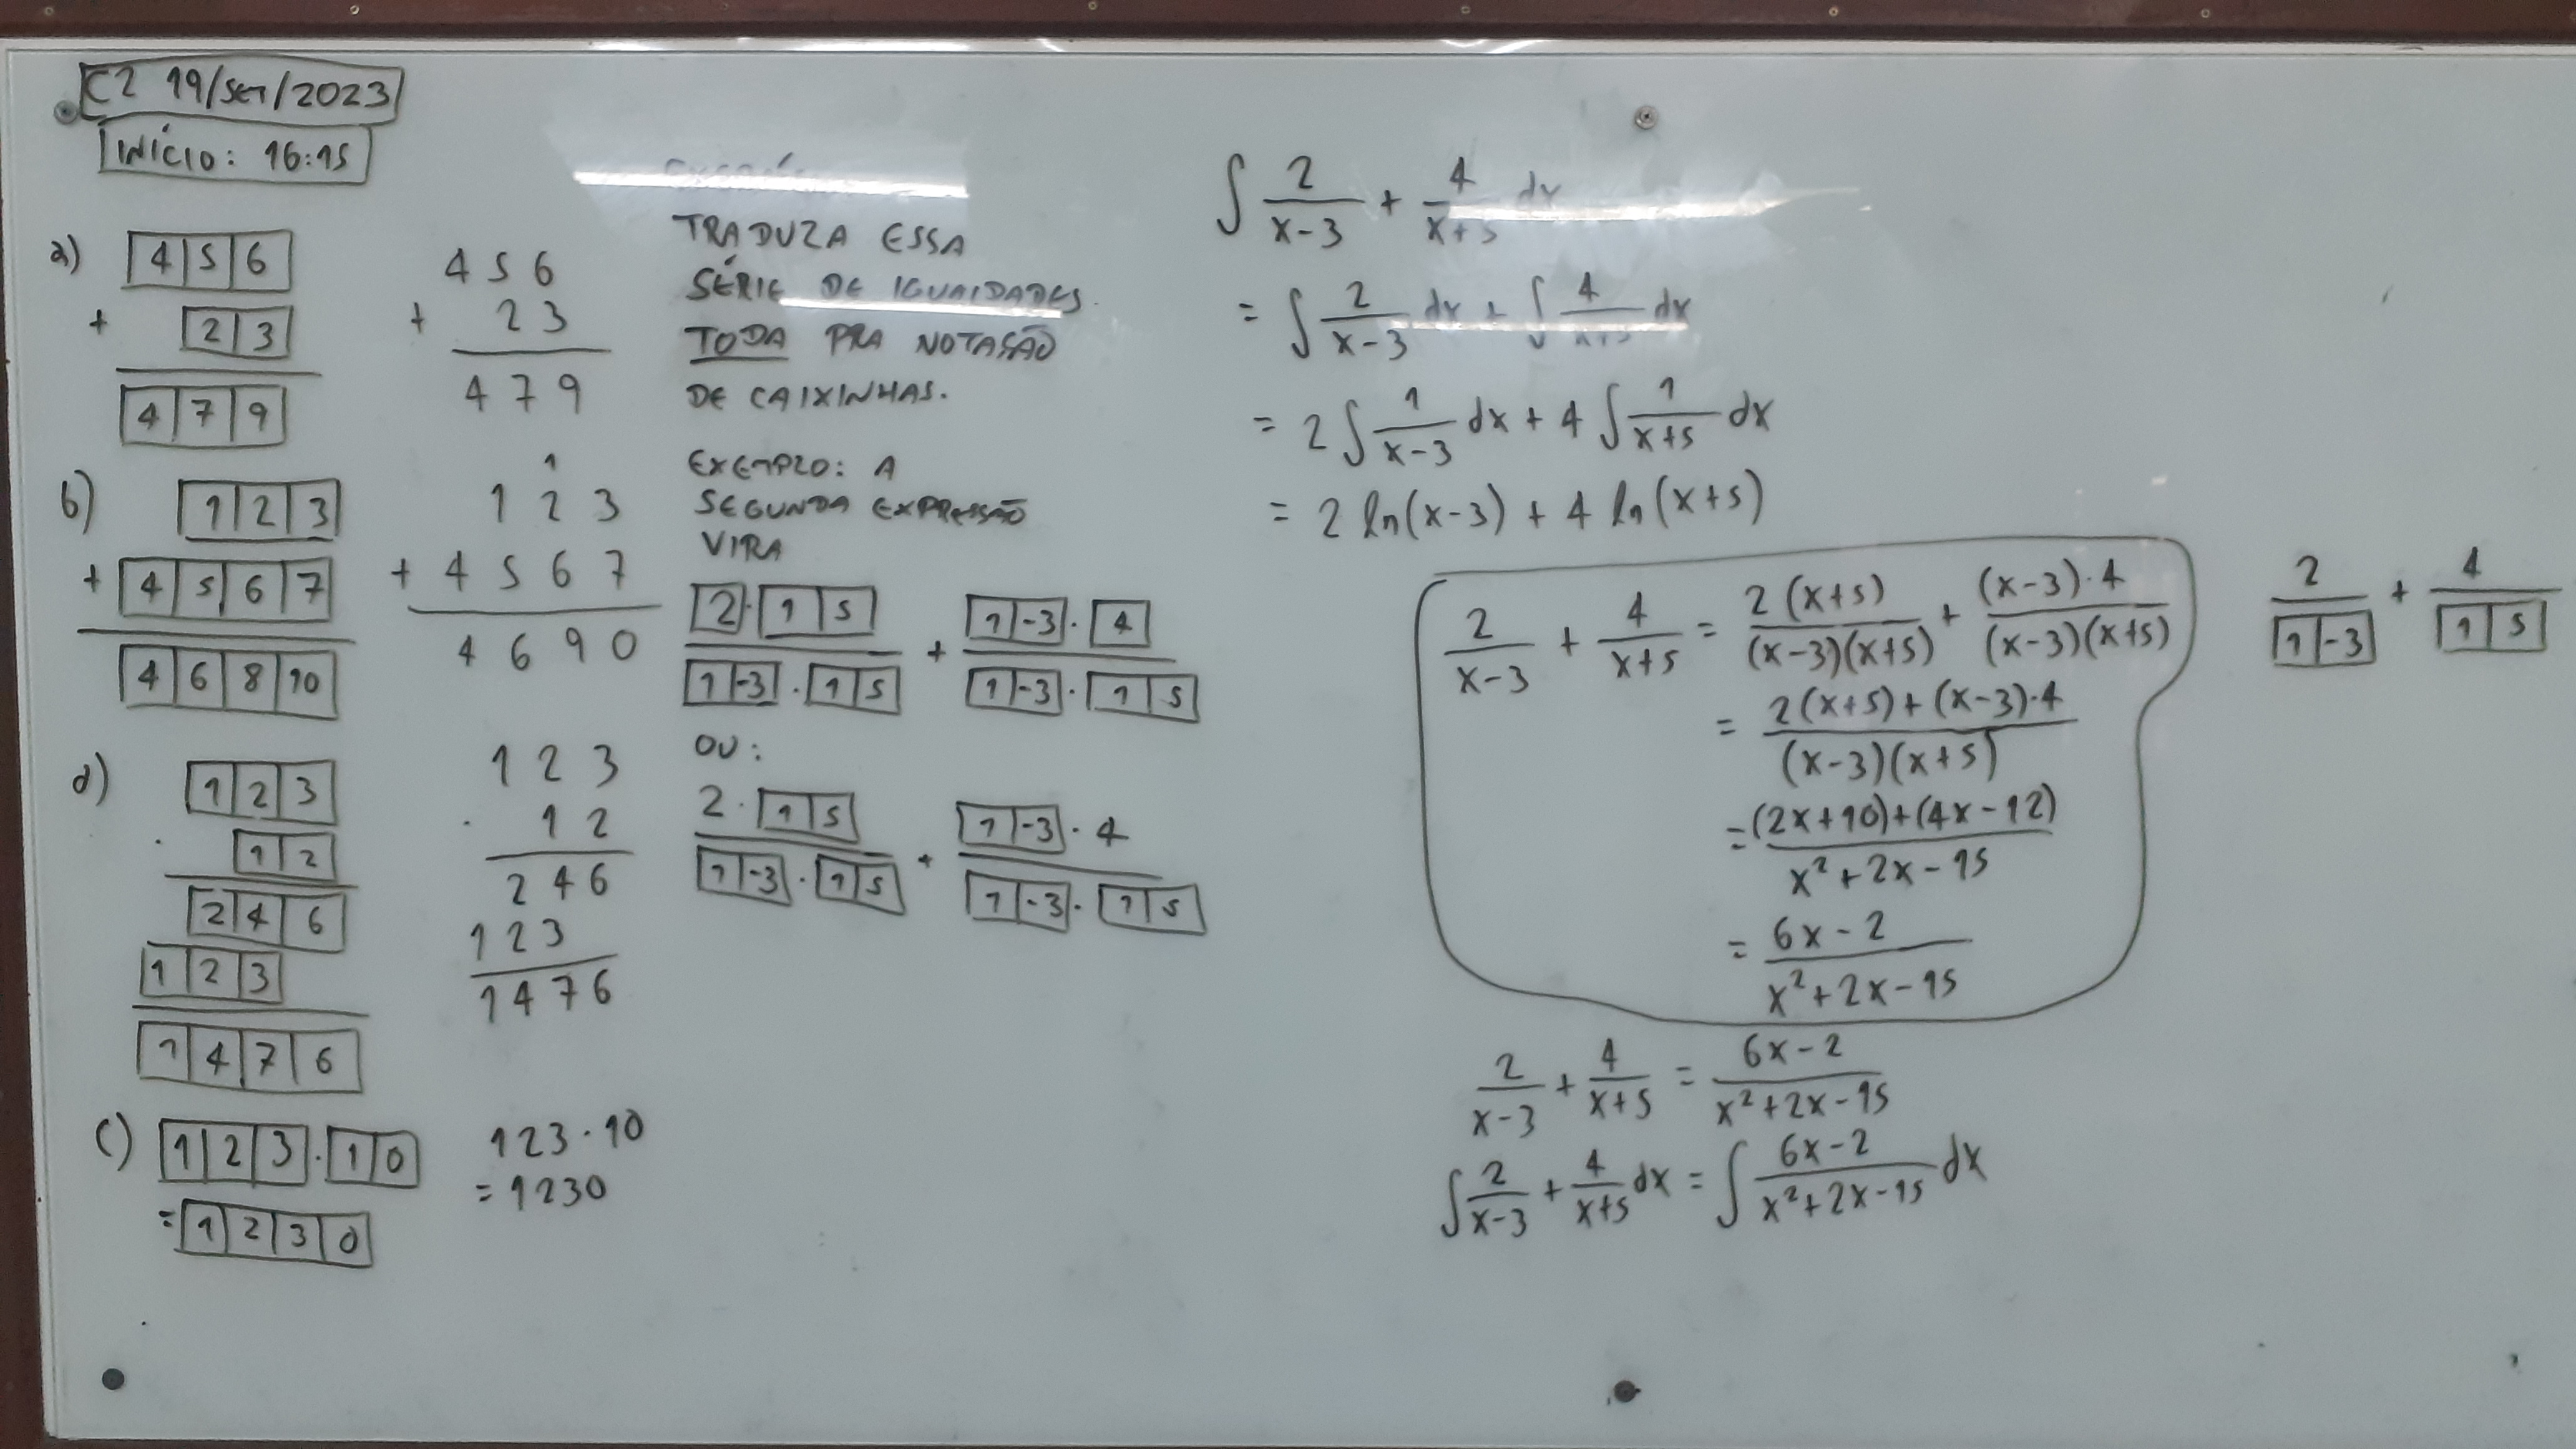 C2 19/SET/2023
INÍCIO: 16:15
a) |4|5|6|
+ |2|3|
|4|7|9|
456
+ 23
479
b) |1|2|3|
+ |4|5|6|7|
|4|6|8|10|
1
123
+ 4567
4690
d) |1|2|3|
· |1|2|
|2|4|6|
|1|2|3|
|1|4|7|6|
123
· 12
246
123
1476
c) |1|2|3| · |1|0|
= |1|2|3|0|
123 · 10
= 1230
TRADUZA ESSA
SÉRIE DE IGUALDADES
TODA PRA NOTASÃO
DE CAIXINHAS.
EXEMPLO: A
SEGUNDA EXPRESSÃO
VIRA
|2| · |1|5| / |1|-3| · |1|5| + |1|-3| · |4| / |1|-3| · |1|5|
OU:
2 · |1|5| / |1|-3| · |1|5| + |1|-3| · 4 / |1|-3| · |1|5|
∫ 2/(x-3) + 4/(x+5) dx
= ∫ 2/(x-3) dx + ∫ 4/(x+5) dx
= 2 ∫ 1/(x-3) dx + 4 ∫ 1/(x+5) dx
= 2 ln(x-3) + 4 ln(x+5)
2/(x-3) + 4/(x+5) = 2(x+5)/(x-3)(x+5) + (x-3)·4/(x-3)(x+5)
= 2(x+5)+(x-3)·4 / (x-3)(x+5)
= (2x+10)+(4x-12) / x²+2x-15
= 6x-2 / x²+2x-15
2/(x-3) + 4/(x+5) = 6x-2 / x²+2x-15
∫ 2/(x-3) + 4/(x+5) dx = ∫ 6x-2 / x²+2x-15 dx
2 / |1|-3| + 4 / |1|5|